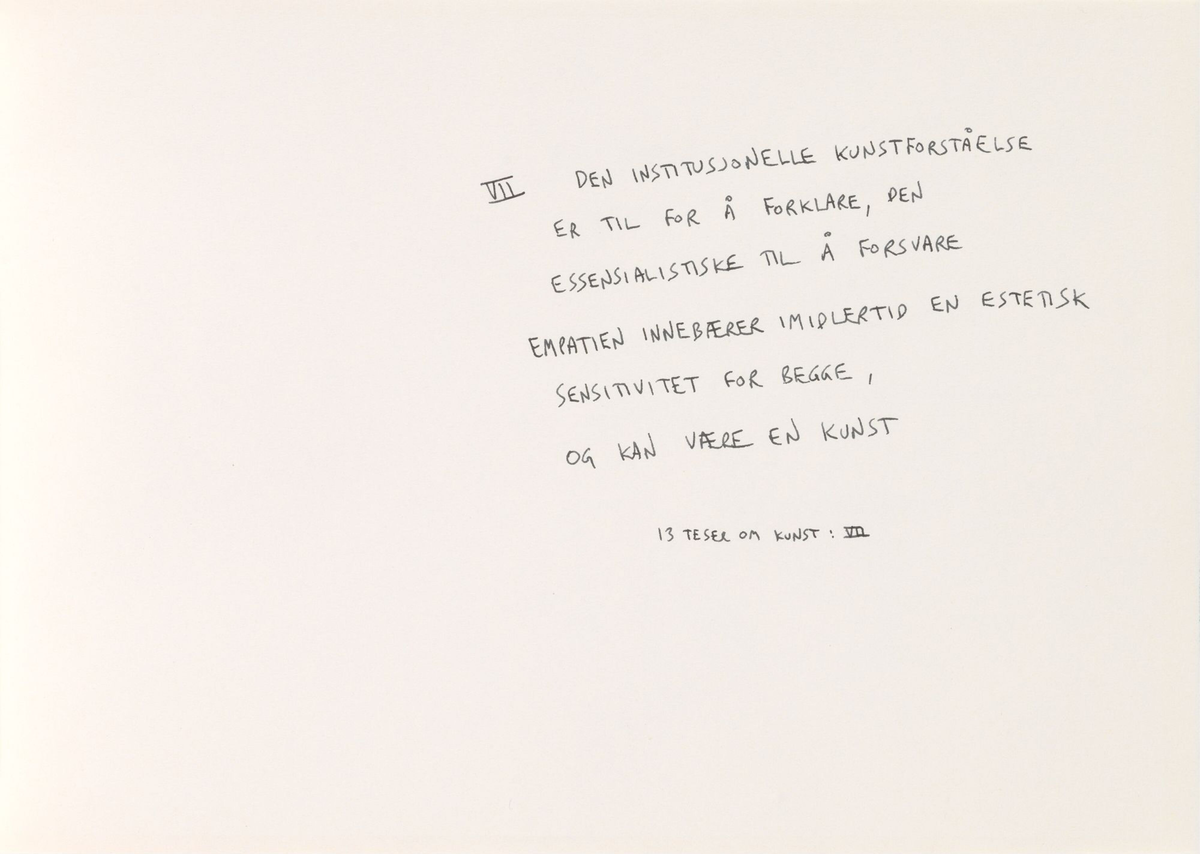 VII DEN INSTITUSJONELLE KUNSTFORSTÅELSE
ER TIL FOR Å FORKLARE, DEN
ESSENSIALISTISKE TIL Å FORSVARE
EMPATIEN INNEBÆRER IMIDLERTID EN ESTETISK
SENSITIVITET FOR BEGGE,
OG KAN VÆRE EN KUNST
13 TESER OM KUNST: VII